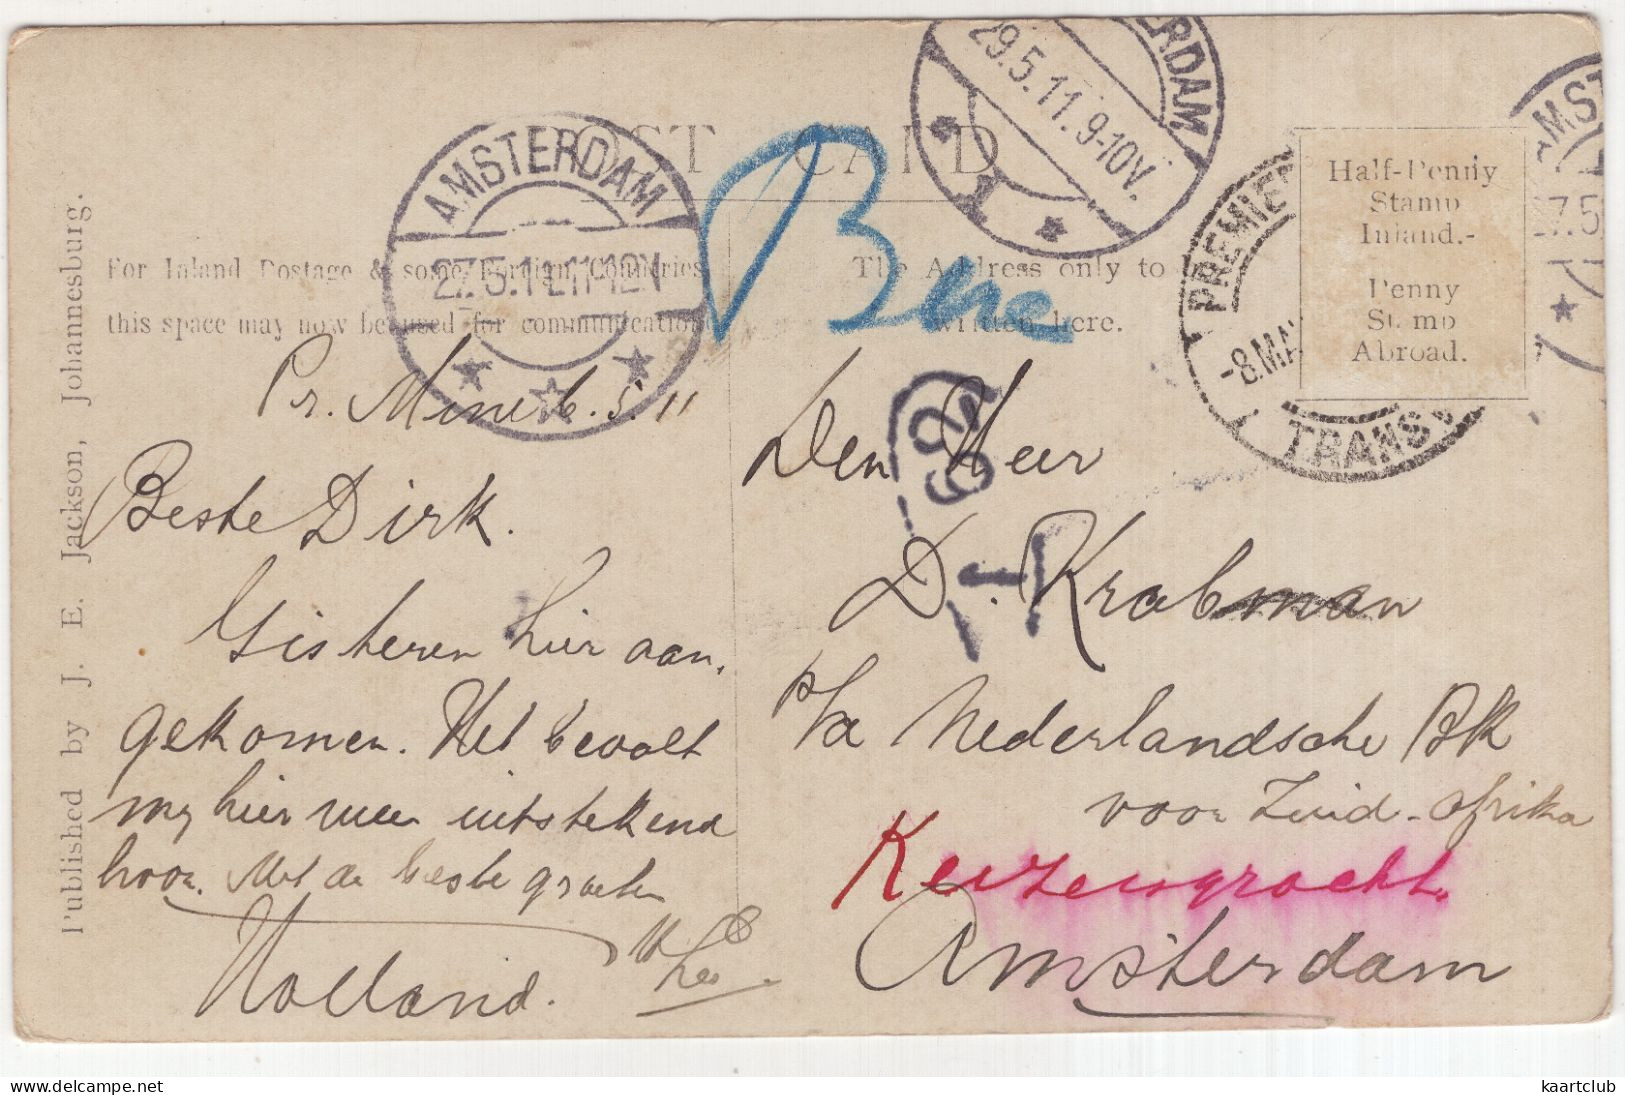 POST CARD
For Inland Postage & some Foreign Countries
this space may now be used for communication
The Address only to
written here.
Half-Penny
Stamp
Inland.-
Penny
Stamp
Abroad.
Published by J. E. Jackson, Johannesburg.
AMSTERDAM
27.5.11.11-12V
★ ★ ★
ERDAM
29.5.11.9-10V.
1 *
PREMIE
-8.MA
TRANSV
AMST
27.5
Pr. Mine 6.5.11
Beste Dirk.
Gisteren hier aan,
gekomen. Het bevalt
my hier weer uitstekend
hoor. Met de beste groeten
Holland.
Den Heer
D. Krabman
p/a Nederlandsche Bk
voor Zuid-Afrika
Keizersgracht.
Amsterdam
kaartclub